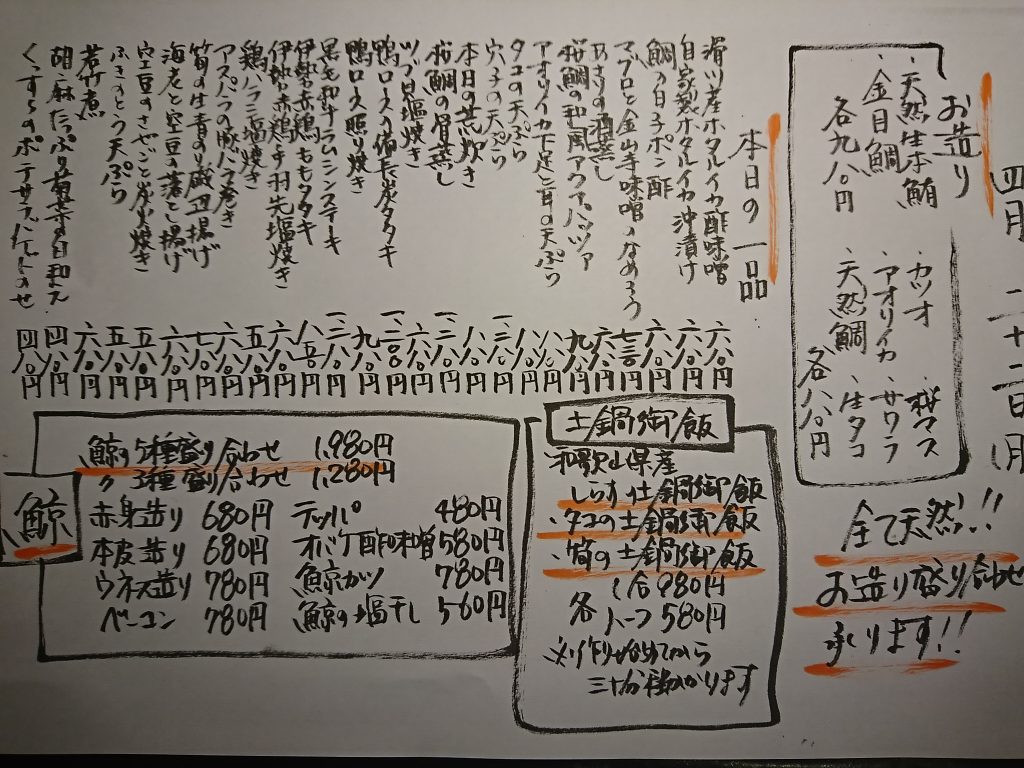 四月二十二日(月)
お造り
・天然生本鮪
・金目鯛
各九八〇円
・カツオ ・桜マス
・アオリイカ ・サワラ
・天然鯛 ・生タコ
各八八〇円
全て天然!!
お造り盛り合わせ
承ります!!
本日の一品
滑川産ホタルイカ酢味噌 六八〇円
自家製ホタルイカ沖漬け 六八〇円
鯛の白子ポン酢 六八〇円
マグロと金山寺味噌のなめろう
あさりの酒蒸し 六八〇円
桜鯛の和風アクアパッツァ 九八〇円
アオリイカ下足と耳の天ぷら
穴子の天ぷら
タコの天ぷら
本日の荒炊き
桜鯛の骨蒸し
ツブ貝塩焼き
鴨ロースの備長炭タタキ
鴨ロース照り焼き 九八〇円
黒毛和牛ラムシンステーキ
伊勢赤鶏ももタタキ 八五〇円
伊勢赤鶏手羽先塩焼き 六八〇円
鶏ハラミ塩焼き 五八〇円
アスパラの豚バラ巻き 六八〇円
筍の生青のり磯辺揚げ 七八〇円
海老と空豆の蓮根揚げ 六八〇円
空豆のさやごと炭火焼き 五八〇円
ふきのとう天ぷら 五八〇円
若竹煮 六八〇円
胡麻たっぷり菊菜の白和え 四八〇円
くすもりのポテサラ 四八〇円
鯨
鯨の5種盛り合わせ 1,980円
〃 3種盛り合わせ 1,280円
赤身造り 680円 テッパ 480円
本皮造り 680円 オバケ酢味噌 580円
ウネス造り 780円 鯨カツ 780円
ベーコン 780円 鯨の塩干し 560円
土鍋御飯
・和歌山県産
しらす土鍋御飯
・タコの土鍋御飯
・筍の土鍋御飯
各 1合 980円
ハーフ 580円
※作り始めてから
三十分程かかります